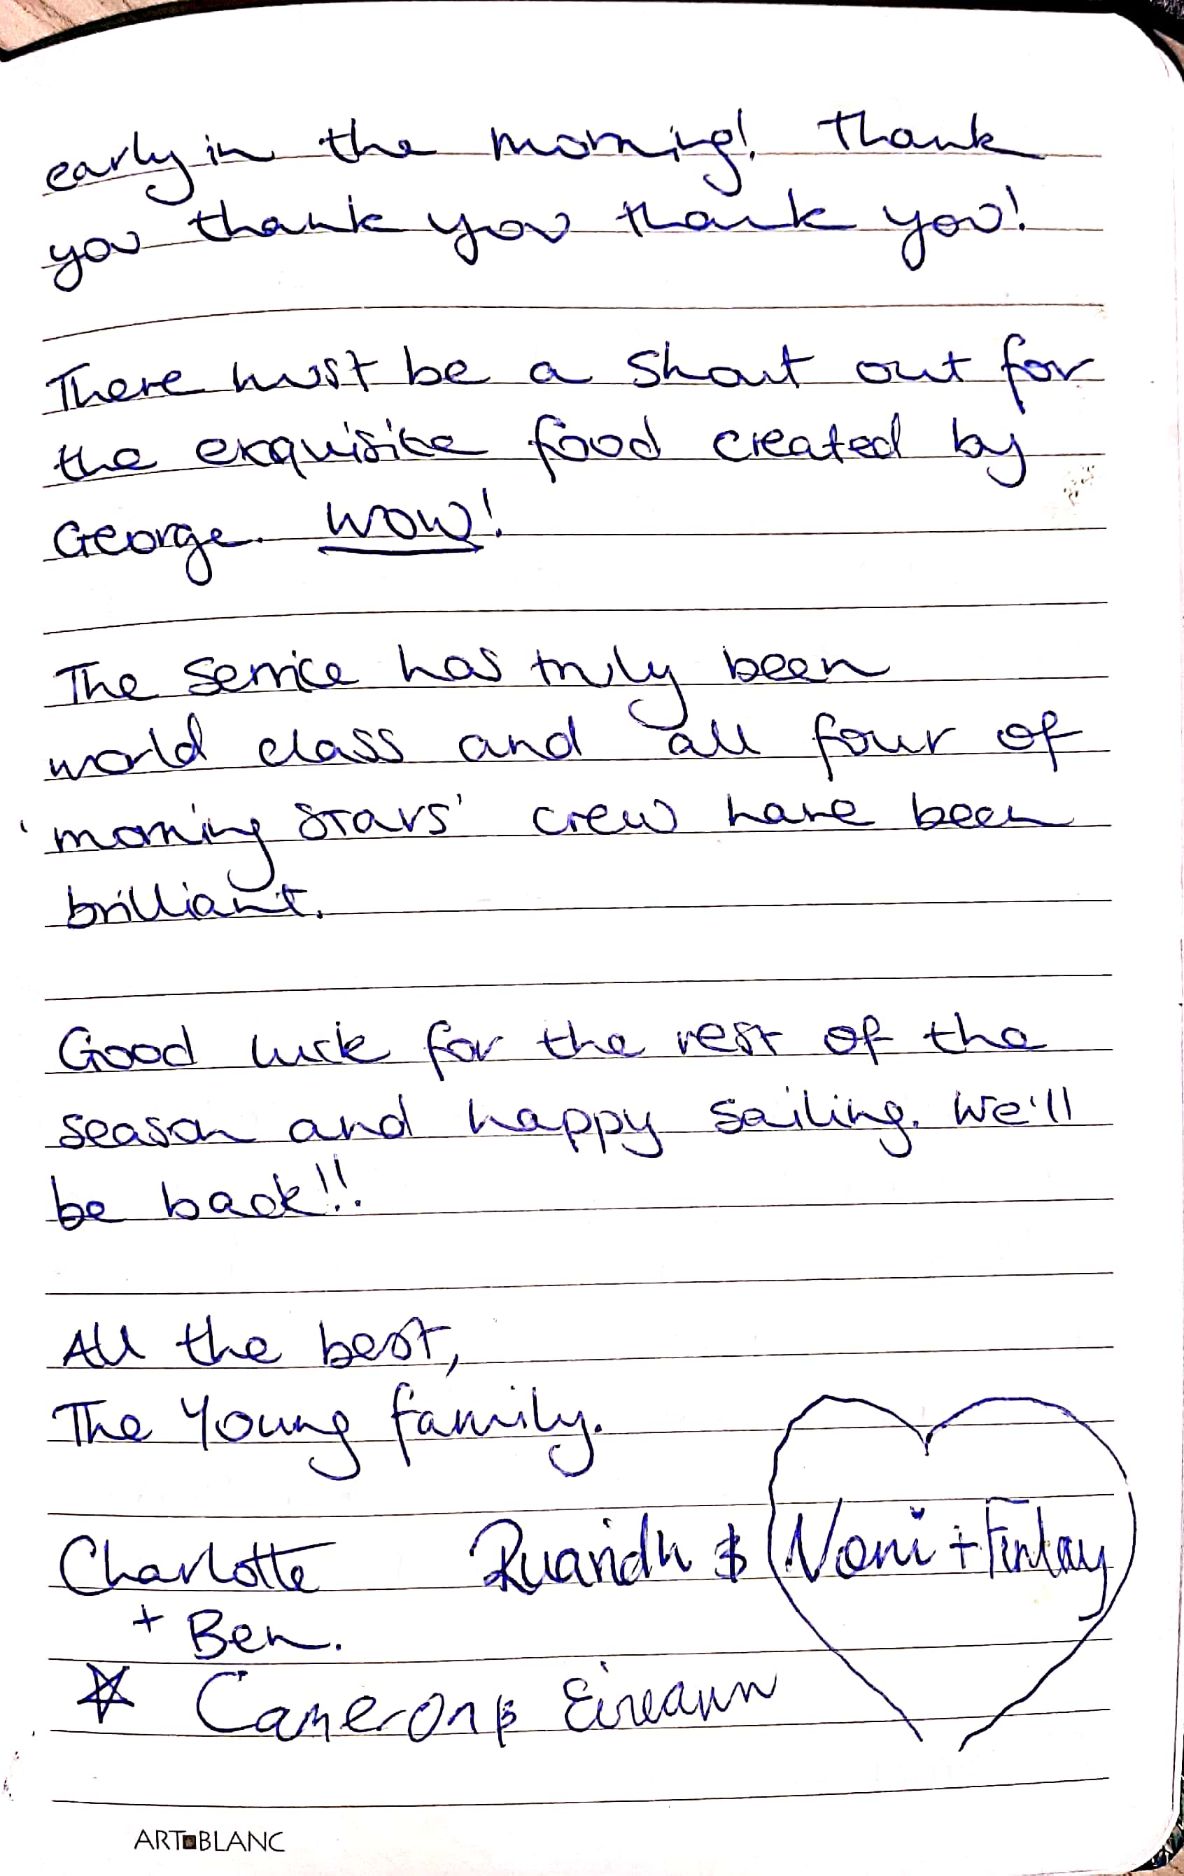 early in the morning! Thank
you thank you thank you!
There must be a shout out for
the exquisite food created by
George. WOW!
The service has truly been
world class and all four of
'morning stars' crew have been
brilliant.
Good luck for the rest of the
season and happy sailing. We'll
be back!!.
All the best,
The Young family.
Charlotte Ruaridh & Noni + Finlay
+ Ben.
Cameron & Eireann
ART BLANC